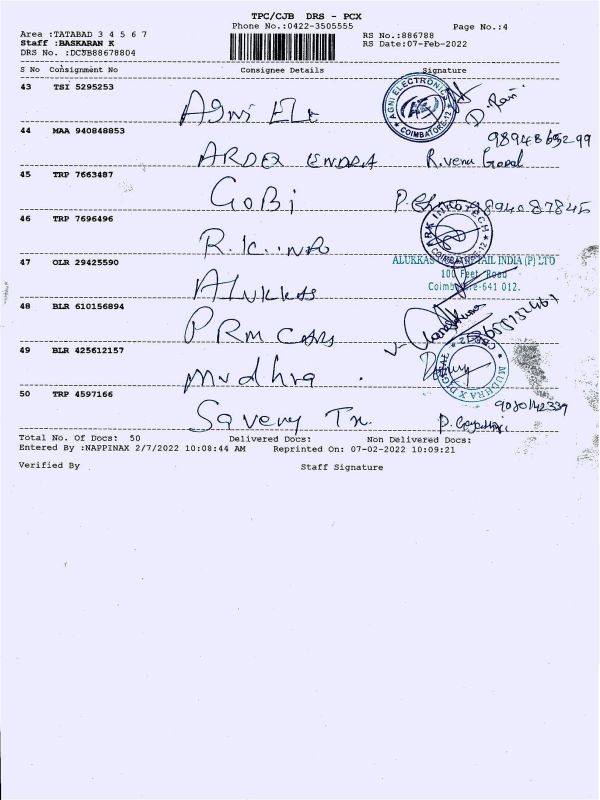 TPC/CJB DRS - PCX
Phone No.:0422-3505555
Page No.:4
Area :TATABAD 3 4 5 6 7
RS No.:886788
Staff :BASKARAN K
RS Date:07-Feb-2022
DRS No. :DCJB88678804
S No Consignment No Consignee Details Signature
43 TSI 5295253
Agni Ele
AGNI ELECTRONICS COIMBATORE-12
44 MAA 940848853
ARDEX ENDURA R. Venu Gopal
45 TRP 7663487
GOBi P. 9894087845
46 TRP 7696496
R.K. INFO
ARK INFOTECH COIMBATORE-12
47 OLR 29425590
Alukkas
ALUKKAS RETAIL INDIA (P) LTD
100 Feet Road
Coimbatore-641 012.
48 BLR 610156894
PRM CARS
49 BLR 425612157
Mudhra
MUDHRA X DIGITAL CBE-12
50 TRP 4597166
Savery Tx. 9080142339
Total No. Of Docs: 50 Delivered Docs: Non Delivered Docs:
Entered By :NAPPINAX 2/7/2022 10:08:44 AM Reprinted On: 07-02-2022 10:09:21
Verified By Staff Signature